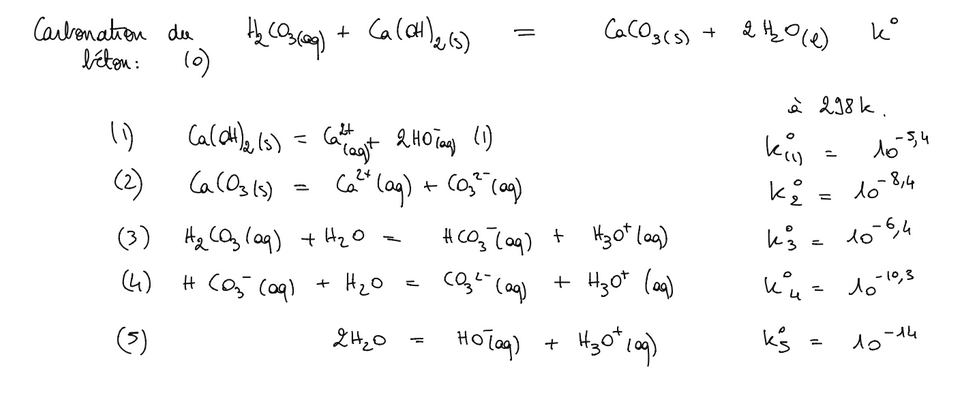 Carbonation du H₂CO₃(aq) + Ca(OH)₂(s) = CaCO₃(s) + 2H₂O(l) K°
béton: (0)
à 298K.
(1) Ca(OH)₂(s) = Ca²⁺(aq) + 2HO⁻(aq) (1) K°(1) = 10^-5,4
(2) CaCO₃(s) = Ca²⁺(aq) + CO₃²⁻(aq) K°2 = 10^-8,4
(3) H₂CO₃(aq) + H₂O = HCO₃⁻(aq) + H₃O⁺(aq) K°3 = 10^-6,4
(4) HCO₃⁻(aq) + H₂O = CO₃²⁻(aq) + H₃O⁺(aq) K°4 = 10^-10,3
(5) 2H₂O = HO⁻(aq) + H₃O⁺(aq) K°5 = 10^-14